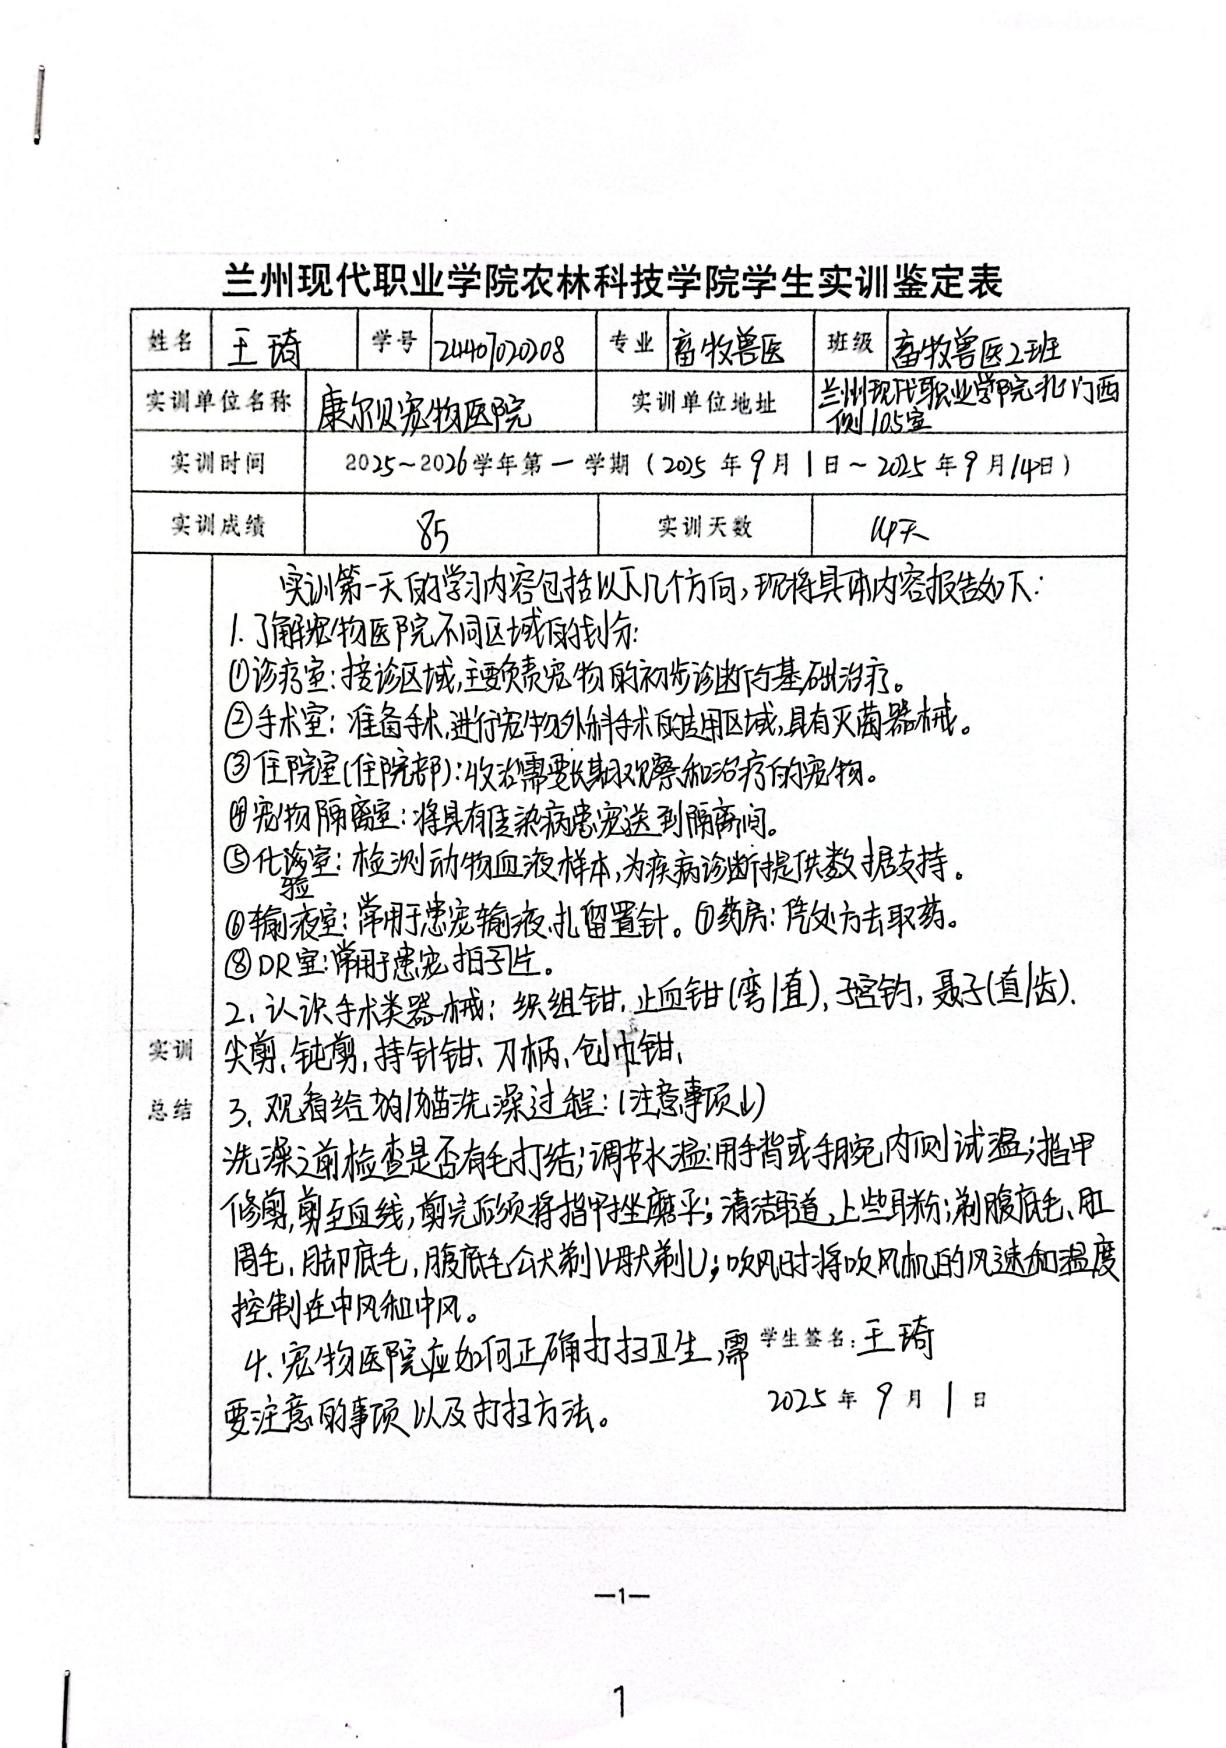 兰州现代职业学院农林科技学院学生实训鉴定表
姓名 王琦 学号 24407020208 专业 畜牧兽医 班级 畜牧兽医2班
实训单位名称 康尔贝宠物医院 实训单位地址 兰州现代职业学院北门西侧105室
实训时间 2025~2026学年第一学期(2025年9月1日~2025年9月14日)
实训成绩 85 实训天数 14天
实训总结
实训第一天的学习内容包括以下几个方向,现将具体内容报告如下:
1.了解宠物医院不同区域的划分:
①诊疗室:接诊区域,主要负责宠物的初步诊断与基础治疗。
②手术室:准备手术,进行宠物外科手术的专用区域,具有灭菌器械。
③住院室(住院部):收治需要长期观察和治疗的宠物。
④宠物隔离室:将具有传染病患宠送到隔离间。
⑤化验室:检测动物血液样本,为疾病诊断提供数据支持。
⑥输液室:常用于患宠输液、扎留置针。⑦药房:凭处方去取药。
⑧DR室:常用于患宠拍子片。
2、认识手术类器械:织组钳,止血钳(弯/直),子宫钩,聂子(直/齿)、
尖剪、钝剪,持针钳、刀柄、创巾钳、
3、观看给狗/猫洗澡过程:(注意事项↓)
洗澡之前检查是否有毛打结;调节水温:用手背或手腕内侧试温;指甲
修剪,剪至血线,剪完后须将指甲挫磨平;清洁耳道,上些耳粉;剃腹底毛、肛
周毛,脚底毛,腹底毛公犬剃V母犬剃U;吹风时将吹风机的风速和温度
控制在中风和中风。
4、宠物医院应如何正确打扫卫生,需
要注意的事项以及打扫方法。
学生签名:王琦
2025年9月1日
—1—
1